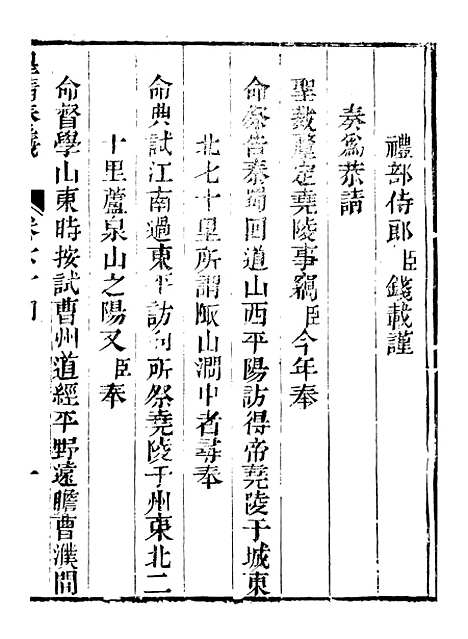 禮部侍郎臣錢載謹
奏爲恭請
聖裁釐定堯陵事竊臣今年奉
命祭告秦蜀回道山西平陽訪得帝堯陵于城東
北七十里所謂㕍山澗中者尋奉
命典試江南過東平訪向所祭堯陵于州東北二
十里蘆泉山之陽又臣奉
命督學山東時按試曹州道經平野遠瞻曹濮間
皇清奏議
卷六十四
一